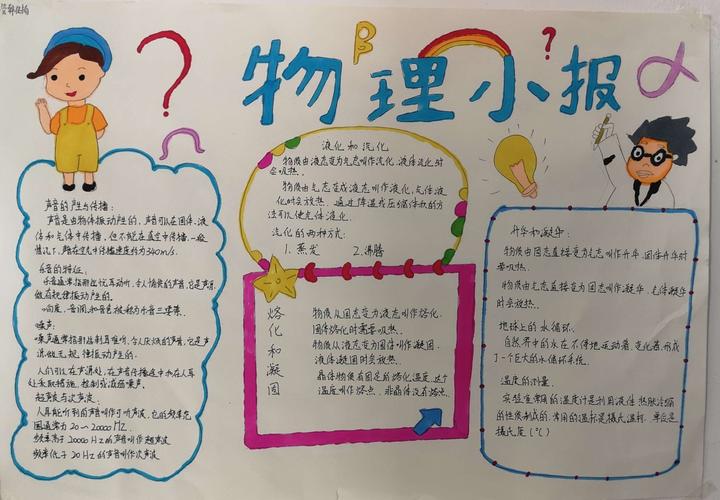 物理小报
声音的产生与传播:
声音是由物体振动产生的,声可以在固体、液
体和气体中传播,但不能在真空中传播,一般
情况下,声在空气中传播速度约为340m/s.
乐音的特征:
乐音通常指那些悦耳动听、令人愉悦的声音,它是声源
做有规律振动产生的.
响度、音调和音色被称为乐音三要素.
噪声:
噪声通常指那些刺耳难听、令人厌烦的声音,它是声
源做无规律振动产生的.
人们可以在声源处,在声音传播途中和在人耳
处采取措施,控制或减弱噪声.
超声波与次声波:
人耳能听到的声叫作可听声波,它的频率范
围通常为 20~20000 HZ.
频率高于 20000 HZ的声音叫作超声波
频率低于 20 HZ的声音叫作次声波
液化和汽化
物质由液态变为气态叫作汽化,液体汽化时
会吸热.
物质由气态变成液态叫作液化,气体液
化时会放热.通过降温或压缩体积的方
法可以使气体液化.
汽化的两种方式:
1.蒸发 2.沸腾
熔化和凝固
物质从固态变为液态叫作熔化.
固体熔化时需要吸热.
物质从液态变为固态叫作凝固.
液体凝固时会放热.
晶体物质有固定的熔化温度,这个
温度叫作熔点.非晶体没有熔点.
升华和凝华:
物质由固态直接变为气态叫作升华,固体升华时
要吸热.
物质由气态直接变为固态叫作凝华,气体凝华
时会放热.
地球上的水循环.
自然界中的水在不停地运动着、变化着,形成
了一个巨大的水循环系统.
温度的计量.
实验室常用的温度计是利用液体热胀冷缩
的性质制成的,常用的温标是摄氏温标,单位是
摄氏度(℃)